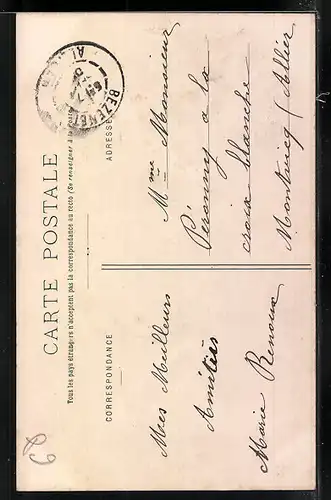 CARTE POSTALE
Tous les pays étrangers n'acceptent pas la correspondance au recto (Se renseigner à la Poste)
CORRESPONDANCE
Mes Meilleurs
Amitiés
Marie Renoux
ADRESSE
Mme Monsieur
Péronny a la
croix blanche
Montvicq (Allier
BEZENET
ALLIER